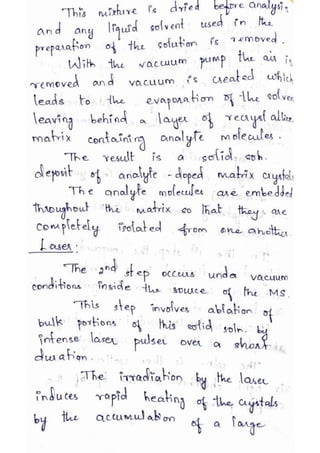 This mixture is dried before analysis
and any liquid solvent used in the
preparation of the solution is removed.
With the vacuum pump the air is
removed and vacuum is created which
leads to the evaporation of the solven
leaving behind a layer of recrystallize
matrix containing analyte molecules.
The result is a solid soln.
deposit of analyte-doped matrix crystals
The analyte molecules are embedded
throughout the matrix so that they are
completely isolated from one another.
Laser:
The 2nd step occurs under vacuum
conditions inside the source of the MS.
This step involves ablation of
bulk portions of this solid soln. by
intense laser pulses over a short
duration.
The irradiation by the laser
induces rapid heating of the crystals
by the accumulation of a large